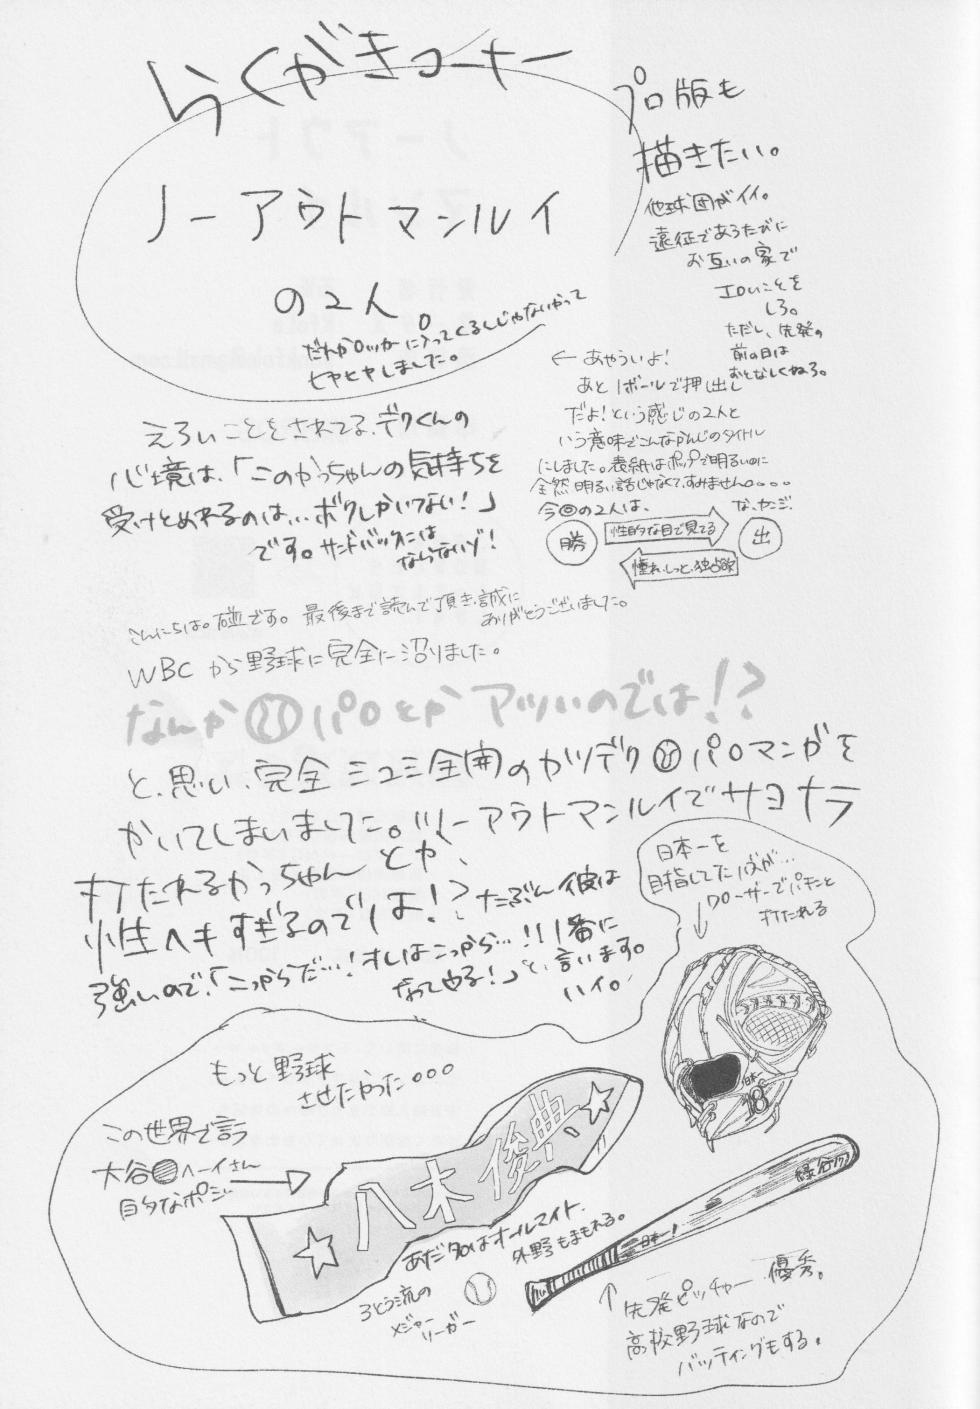 らくがきコーナー
ノーアウトマンルイ
の2人。
だれかロッカーに入ってくるんじゃないかって
ヒヤヒヤしました。
プロ版も
描きたい。
他球団がイイ。
遠征であうたびに
お互いの家で
エロいことを
しろ。
ただし、先発の
前の日は
おとなしくねろ。
← あやういよ!
あと1ボールで押出し
だよ!という感じの2人と
いう意味でこんなかんじのタイトル
にしました。表紙はポップで明るいのに
全然明るい話じゃなくてすみません。。。。
今回の2人は、
な、ヤンジ。
勝
性的な目で見てる
出
憧れ、しっと、独占欲
えろいことをされてる、デクくんの
心境は、「このかっちゃんの気持ちを
受けとめれるのは…ボクしかいない!」
です。サンドバックには
ならないゾ!
こんにちは。碰です。最後まで読んで頂き誠に
ありがとうございました。
WBCから野球に完全に沼りました。
なんか パロとかアツいのでは!?
と、思い、完全シュミ全開のカツデク パロマンガを
かいてしまいました。ノーアウトマンルイでサヨナラ
打たれるかっちゃんとか、
性ヘキすぎるのでは!?たぶん彼は
強いので、「こっからだ…!オレはこっから…!!1番に
なってやる!」と、言います。
ハイ。
日本一を
目指してたハズが…
クローザーでパキンと
打たれる
日本一
18
もっと野球
させたかった。。。
この世界で言う
大谷 ヘーイさん
的なポジ
八木俊典
あだ名はオールマイト。
外野もまもれる。
3とう流の
メジャー
リーガー
緑谷
日本一!
先発ピッチャー 優秀。
高校野球なので
バッティングもする。